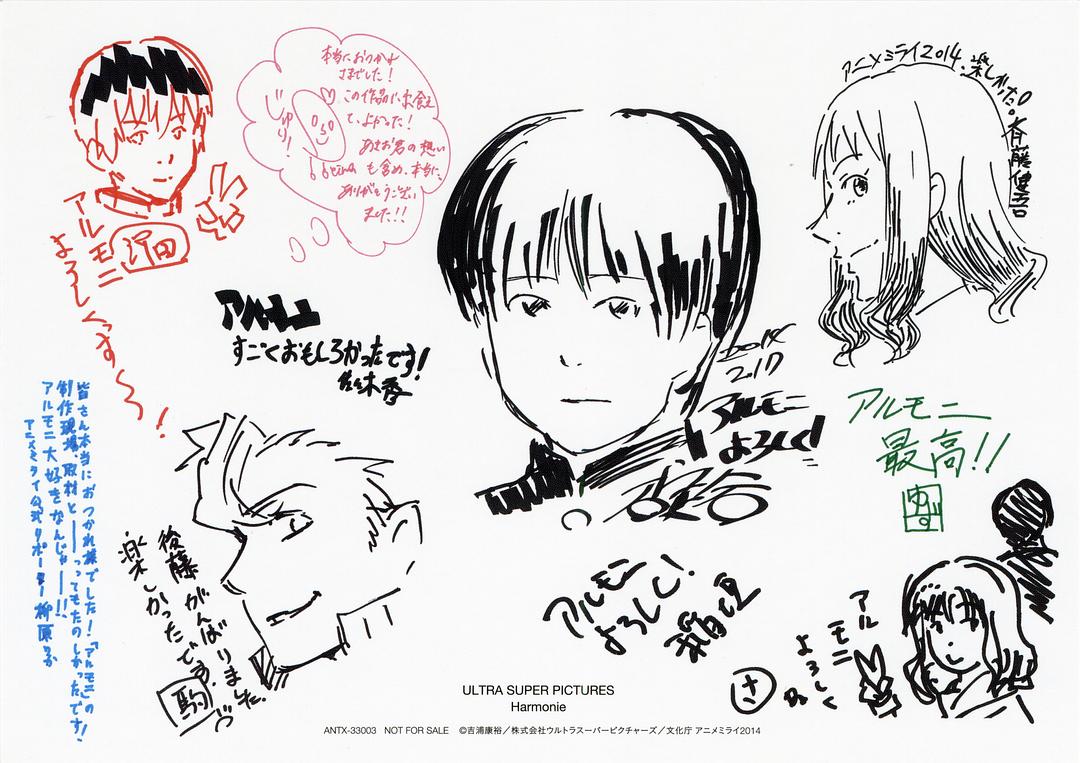 アルモニ
よろしくっす〜!
沼田
本当におつかれ
さまでした!
この作品に出会え
て、よかった!
あきお君の想い
も含め、本当に、
ありがとうござい
ました!!
アニメミライ2014、楽しかった。
斉藤健吾
アルモニ
すごくおもしろかったです!
佐々木香
2014
2.17
アルモニ
よろしく!
アルモニ
最高!!
皆さん本当におつかれ様でした!「アルモニ」の
制作現場、取材と——ってもたのしかったです!
アルモニ大好きなんじゃ——!!
アニメミライ公式サポーター 柳原りか
後藤がんばりました。
楽しかったです。
駒
アルモニ
よろしく!
アルモニ
よろしく
さ
ULTRA SUPER PICTURES
Harmonie
ANTX-33003 NOT FOR SALE ©吉浦康裕/株式会社ウルトラスーパーピクチャーズ/文化庁 アニメミライ2014